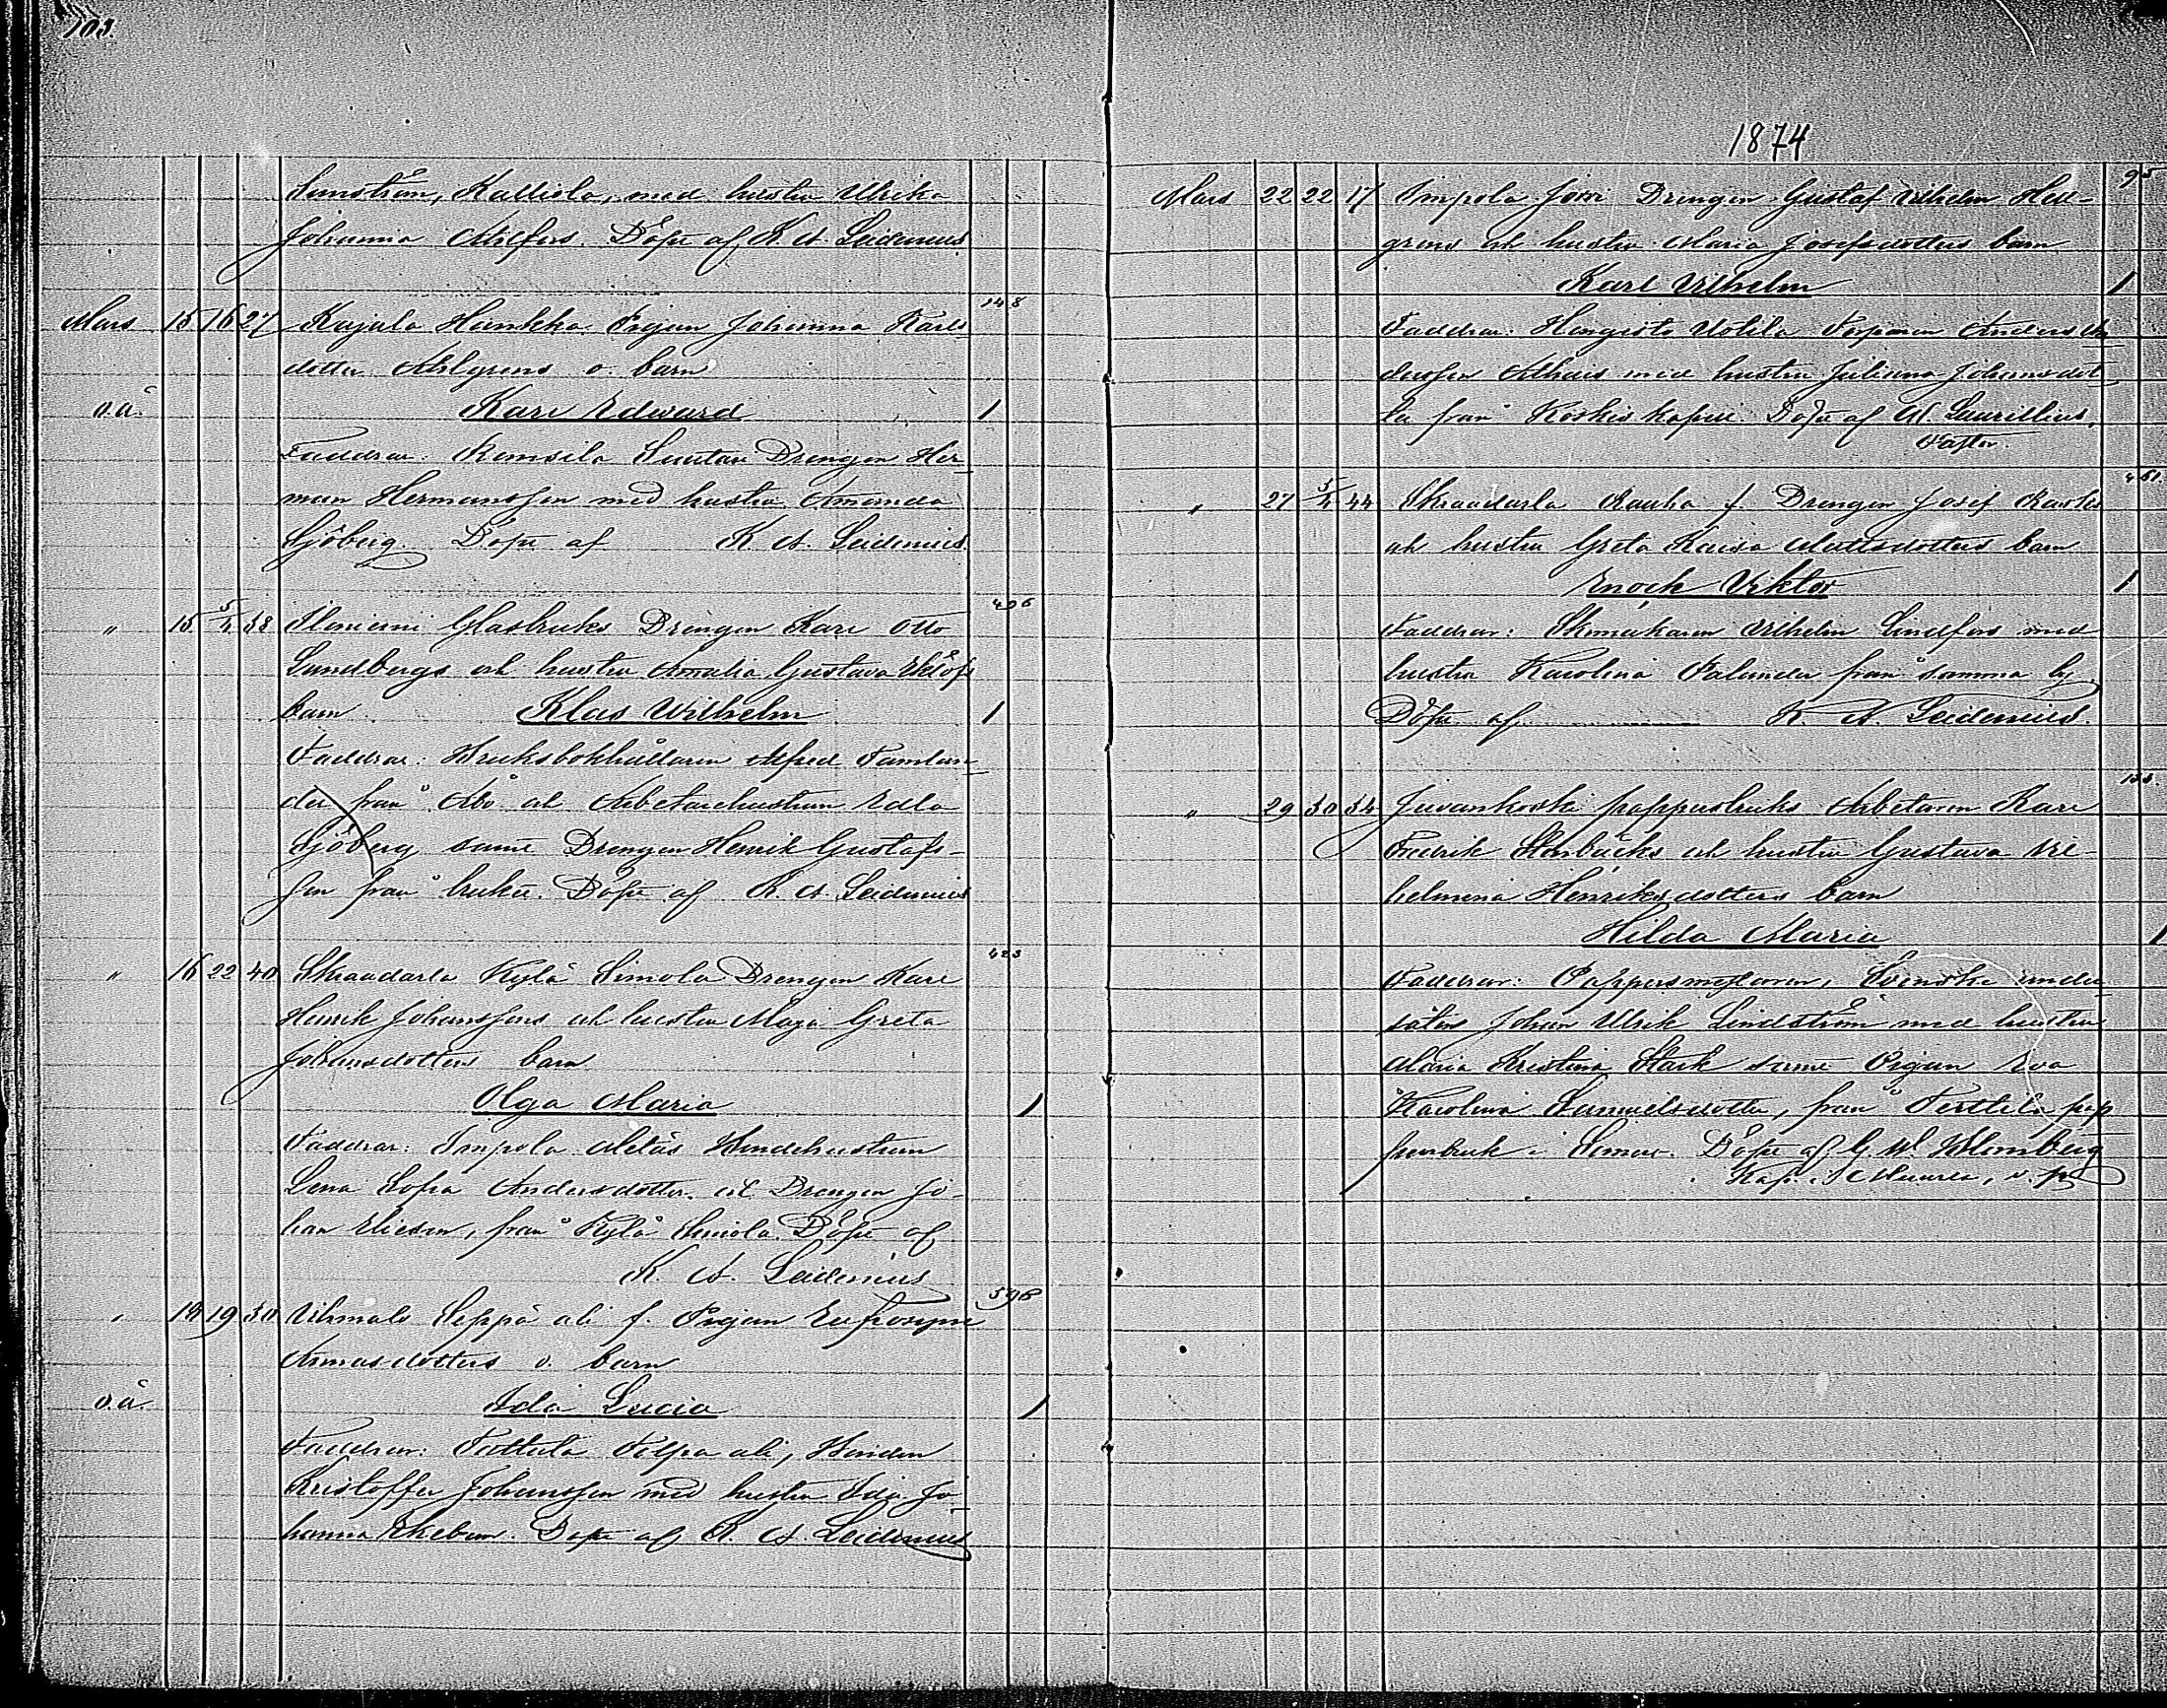 103.
Sunström, Kalliola, med hustru Ulrika
Johanna Ahlfors. Döpt af K. A. Leidenius
148
Mars 15 16 27 Kujala Hankka Pigan Johanna Karls
dotter Ahlgrens o. barn
o.ä. Karl Edward 1
Faddrar: Remsila Suutari Drengen Her
man Hermansson med hustru Amanda
Sjöberg. Döpt af K. A. Leidenius.
496
" 15 5/4 38 Glasbruks Drengen Karl Otto
Sundbergs och hustru Amalia Gustava Eklöfs
barn Klas Wilhelm 1
Faddrar: Bruksbokhållaren Alfred Tamlan
der från Åbo och Arbetarehustrun Edla
Sjöberg samt Drengen Henrik Gustafs-
son från bruket. Döpt af K. A. Leidenius
423
" 16 22 40 Skraadarla Kylä Simola Drengen Karl
Henrik Johanssons och hustru Maja Greta
Johansdotters barn
Olga Maria 1
Faddrar: Impola Alitas Bondehustrun
Lena Sofia Andersdotter och Drengen Jo-
han Ericson, från Kylä Simola. Döpt af
K. A. Leidenius
596
" 18 19 30 Vihmalo Seppä ali f. Pigan Eufrosyne
Armasdotters o. barn
o.ä. Ida Lucia 1
Faddrar: Tattula Tolpa ali, Bonden
Kristoffer Johansson med hustru Ida Jo
hanna Ekebom. Döpt af K. A. Leidenius
1874
95
Mars 22 22 17 Impola Jossi Drengen Gustaf Vilhelm Hell-
grens och hustru Maria Josefsdotters barn
Karl Vilhelm 1
Faddrar: Hingisto Uotila Torparen Anders An
dersson Alhais med hustru Juliana Johansdot
ter från Koskis kapell. Döpt af A. Laurellius,
Pastor.
461.
" 27 5/4 44 Skraadarla Rauha f. Drengen Josef
och hustru Greta Kaisa Mattsdotters barn
Enoch Viktor 1
Faddrar: Skomakaren Vilhelm Lindfors med
hustru Karolina Palander från samma by
Döpt af K. A. Leidenius.
" 29 30 34 Juvankoski pappersbruks Arbetaren Karl
Fredrik Stenbäcks och hustru Gustava Vil-
helmina Henriksdotters barn
Hilda Maria 1
Faddrar: Pappersmästaren, Svenske under
såten Johan Ulrik Lindström med hustru
Maria Kristina Stark samt Pigan Eva
Karolina Samuelsdotter, från Terttilä pap
persbruk i Somero. Döpt af G. W. Holmberg
Kap. i v. p.